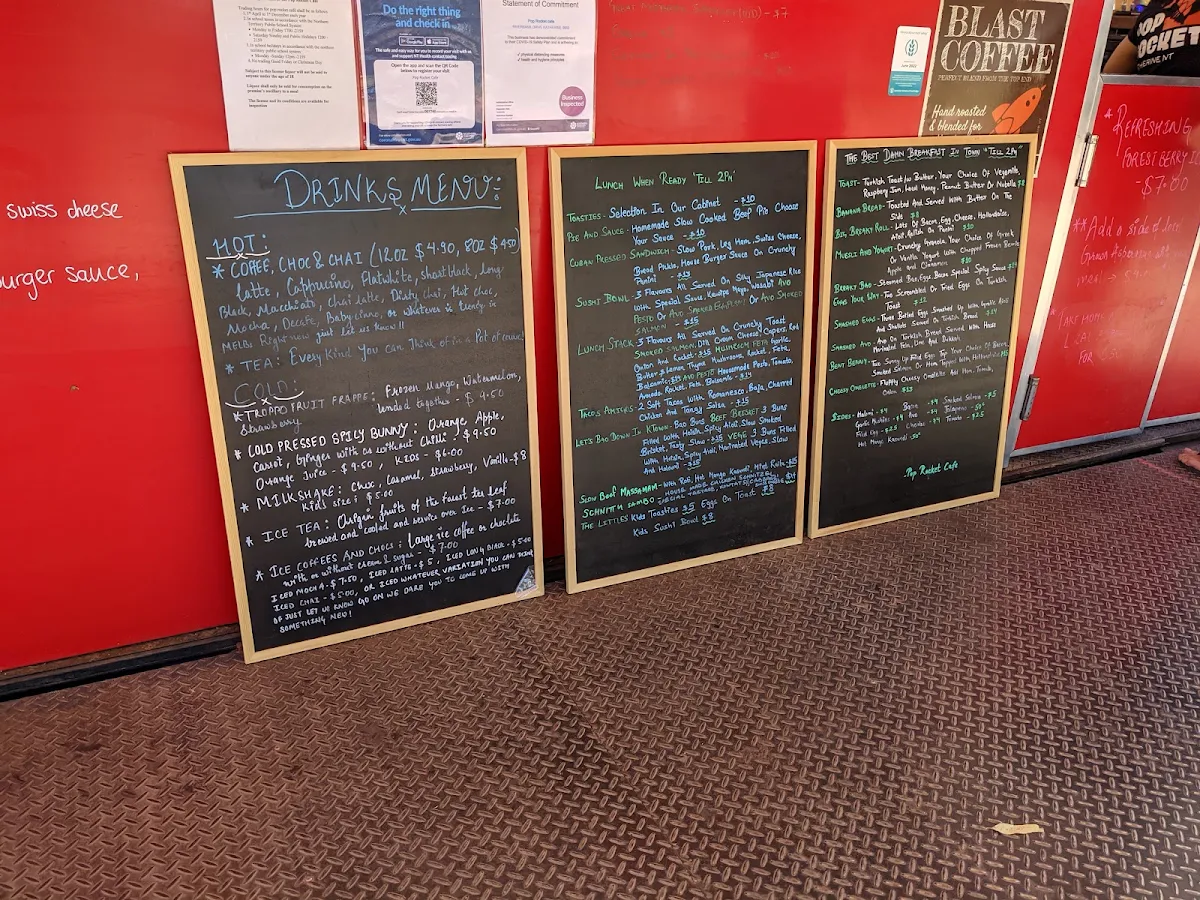 swiss cheese
burger sauce,
Do the right thing
and check in
Open the app and scan the QR Code
below to register your visit
Statement of Commitment
physical distancing measures
health and hygiene
Business
Inspected
BLAST
COFFEE
PERFECT BLEND FROM THE TOP END
Hand roasted
& blended for
POP
ROCKET
KATHERINE NT
* REFRESHING
FOREST BERRY
- $7.00
**Add a side of
DRINKS MENU:
HOT:
* COFFEE, CHOC & CHAI (12OZ $4.90, 8OZ $4.50)
Latte, Cappucino, Flatwhite, short black, long
Black, Macchiato, Chai latte, Dirty Chai, Hot choc,
Mocha, Decafe, Babycino, or whatever is trendy in
MELB. Right now just let us know!!
* TEA: Every Kind You Can Think of in a Pot of
COLD:
* TROPPO FRUIT FRAPPE: Frozen Mango, Watermelon,
Strawberry blended together - $9.50
* COLD PRESSED SPICY BUNNY: Orange, Apple,
Carrot, Ginger with or without Chilli - $9.50
Orange Juice - $9.50, KIDS - $6.00
* MILKSHAKE: Choc, Caramel, Strawberry, Vanilla - $8
Kids size: $5.00
* ICE TEA: Origin fruits of the forest tea leaf
brewed and cooled and service over Ice - $7.00
* ICE COFFEES AND CHOCS: Large ice coffee or choclate
with or without cream & sugar - $7.00
ICED MOCHA - $7.50, ICED LATTE - $5, ICED LONG BLACK - $5.00
ICED CHAI - $5.00, OR ICED WHATEVER VARIATION YOU CAN THINK
OF JUST LET US KNOW GO ON WE DARE YOU TO COME UP WITH
SOMETHING NEW!
LUNCH WHEN READY 'TILL 2PM
TOASTIES - Selection In Our Cabinet - $10
PIE AND SAUCE - Homemade Slow Cooked Beef Pie Choose
Your Sauce - $10
CUBAN PRESSED SANDWICH - Slow Pork, Leg Ham, Swiss Cheese,
Bread Pickles, House Burger Sauce On Crunchy
Panini - $15
SUSHI BOWL - 3 Flavours All Served On Silky Japanese Rice
With Special Sauce, Kewpie Mayo, Wasabi AVO
PESTO Or AVO SMOKED EGGPLANT Or AVO SMOKED
SALMON - $15
LUNCH STACK - 3 Flavours All Served On Crunchy Toast
SMOKED SALMON, Dill Cream Cheese, Capers, Red
Onion And Rocket - $15 MUSHROOM FETA Garlic
Butter & Lemon Thyme Mushrooms, Rocket, Feta,
Balsamic, $15 AVO PESTO Homemade Pesto, Tomato,
Avocado, Rocket, Feta, Balsamic - $14
TACOS AMIGOS - 2 Soft Tacos With Romanesco, Baja, Charred
Chicken And Tangy Salsa - $15
LETS BAO DOWN IN KTOWN - Bao Buns BEEF BRISKET 3 Buns
Filled With Hoisin, Spicy Aioli, Slow Smoked
Brisket, Tasty Slaw - $15 VEGE 3 Buns Filled
With Hoisin, Spicy Aioli, Marinated Veges, Slaw
And Haloumi - $15
SLOW BEEF MASSAMAN - With Rice, Hot Mango Kasundi, Mint Raita - $15
SCHNITTY SAMBO HOUSE MADE CHICKEN SCHNITZEL
THE LITTLES Kids Toasties $5 Eggs On Toast $8
Kids Sushi Bowl $8
THE BEST DAMN BREAKFAST IN TOWN "TILL 2PM"
TOAST - Turkish Toast w/ Butter, Your Choice Of Vegemite,
Raspberry Jam, Local Honey, Peanut Butter Or Nutella $8
BANANA BREAD - Toasted And Served With Butter On The
Side $8
BIG BREAKY ROLL - Lots Of Bacon, Egg, Cheese, Hollandaise,
Aioli, Relish On Panini $10
MUESLI AND YOGURT - Crunchy Granola, Your Choice Of Greek
Or Vanilla Yogurt With Chopped Fresh
Apple and Cinnamon $10
BREAKY BAO - Steamed Bun, Egg, Bacon Special Spicy Sauce
EGGS YOUR WAY - Two Scrambled Or Fried Eggs On Turkish
Toast
SMASHED EGGS - Three Boiled Eggs Smashed Up With Garlic Aioli
And Shallots Served On Turkish Bread $14
SMASHED AVO - Avo On Turkish Bread Served With House
Marinated Feta, Lime And Dukkah
BENT BENNY - Two Sunny Up Fried Eggs Top Your Choice Of Bacon,
Smoked Salmon, Or Ham Topped With Hollandaise
CHEESY OMELETTE - Fluffy Cheesy Omelette Add Ham, Tomato,
Onion $12
SIDES - Halumi - $4 Bacon - $4 Smoked Salmon - $5
Garlic Mushies - $4 Avo - $4 Jalapenos - 50¢
Fried Egg - $2.5 Chorizo - $4 Tomato - $2.5
Hot Mango Kasundi - 50¢
Pop Rocket Cafe